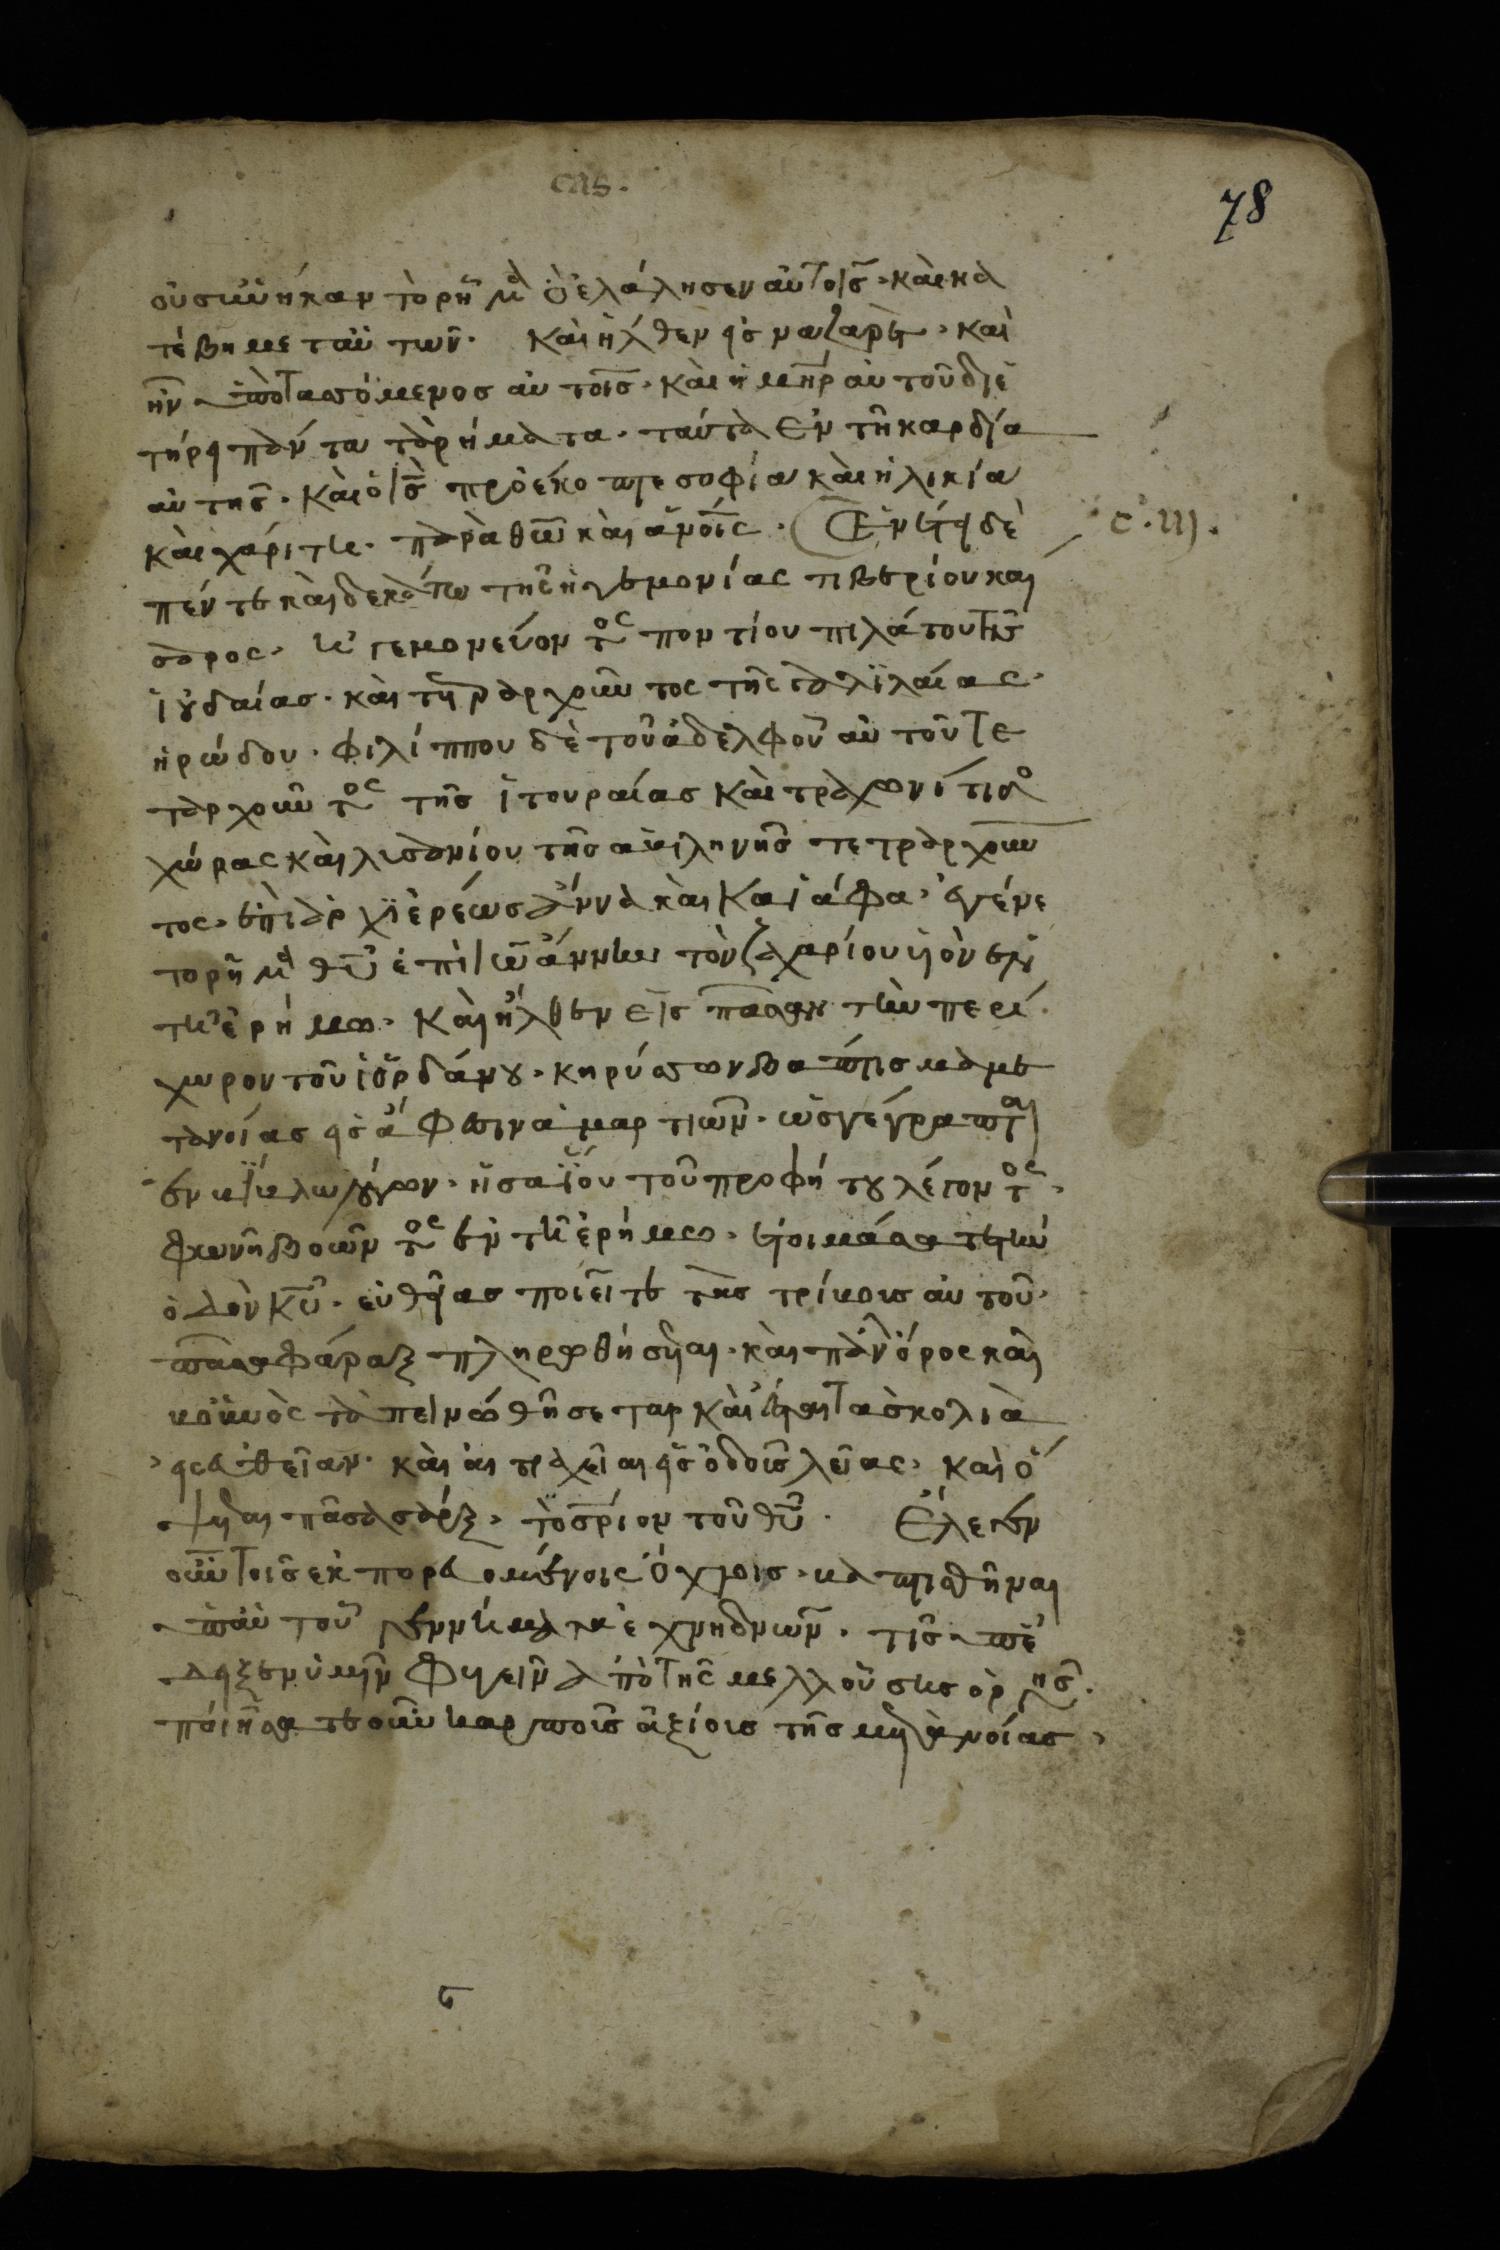 78
οὐ συνῆκαν τὸ ρῆμα ὃ ἐλάλησεν αὐτοῖς· καὶ κα
τέβη μετ αὐτῶν· Καὶ ἦλθεν εἰς ναζαρὲτ· καὶ
ἦν ὑποτασσόμενος αὐτοῖς· καὶ ἡ μηρ αὐτοῦ διε
τήρει πάντα τὰ ρήματα· ταῦτα ἐν τῆ καρδία
αὐτης· Καὶ ὁ ις προέκοπτε σοφία καὶ ἡλικία
καὶ χάριτι· παρὰ θω καὶ ἀνοις· Ἐν ἔτει δὲ
c. III.
πέντε καὶ δεκάτω τῆς ἡγεμονίας τιβερίου και
σαρος· ἡγεμονεύοντος ποντίου πιλάτου τῆς
ἰουδαίας· καὶ τετραρχοῦντος τῆς γαλιλαίας·
ἡρώδου· φιλίππου δὲ τοῦ ἀδελφοῦ αὐτοῦ τε
ταρχοῦντος τῆς ἰτουραίας καὶ τραχωνίτιδος
χώρας καὶ λισανίου τῆς ἀβιληνῆς τετραρχοῦν
τος· ἐπὶ ἀρχιερέως ἄννα καὶ Καϊάφα· ἐγένε
το ρῆμα θυ ἐπὶ ιωάννην τὸν ζαχαρίου υἱὸν ἐν
τῆ ἐρήμω· Καὶ ἦλθεν εἰς πᾶσαν τὴν περί
χωρον τοῦ ἰορδάνου· κηρύσσων βάπτισμα με
τανοίας εἰς ἄφεσιν ἁμαρτιῶν· ὡς γέγραπται
ἐν βίβλω λόγων· ἡσαΐου τοῦ προφήτου λέγοντος·
φωνὴ βοῶντος ἐν τῆ ἐρήμω· ἑτοιμάσατε τὴν
ὁδὸν κυ· εὐθείας ποιεῖτε τὰς τρίβους αὐτοῦ·
πᾶσα φάραξ πληρωθήσεται· καὶ πᾶν ὄρος καὶ
βουνὸς ταπεινωθήσεται καὶ ἔσται τὰ σκολιὰ
εἰς εὐθεῖαν· καὶ αἱ τραχεῖαι εἰς ὁδοὺς λείας· καὶ ὄ
ψεται πᾶσα σάρξ· τὸ σριον τοῦ θυ· Ἔλεγεν
οὖν τοῖς ἐκπορευομένοις ὄχλοις· βαπτισθῆναι
ὑπ αὐτοῦ γεννήματα ἐχιδνῶν· τίς ὑπέ
δειξεν ὑμῖν φυγεῖν ἀπὸ τῆς μελλούσης ὀργῆς·
ποιήσατε οὖν καρποὺς ἀξίους τῆς μετανοίας·